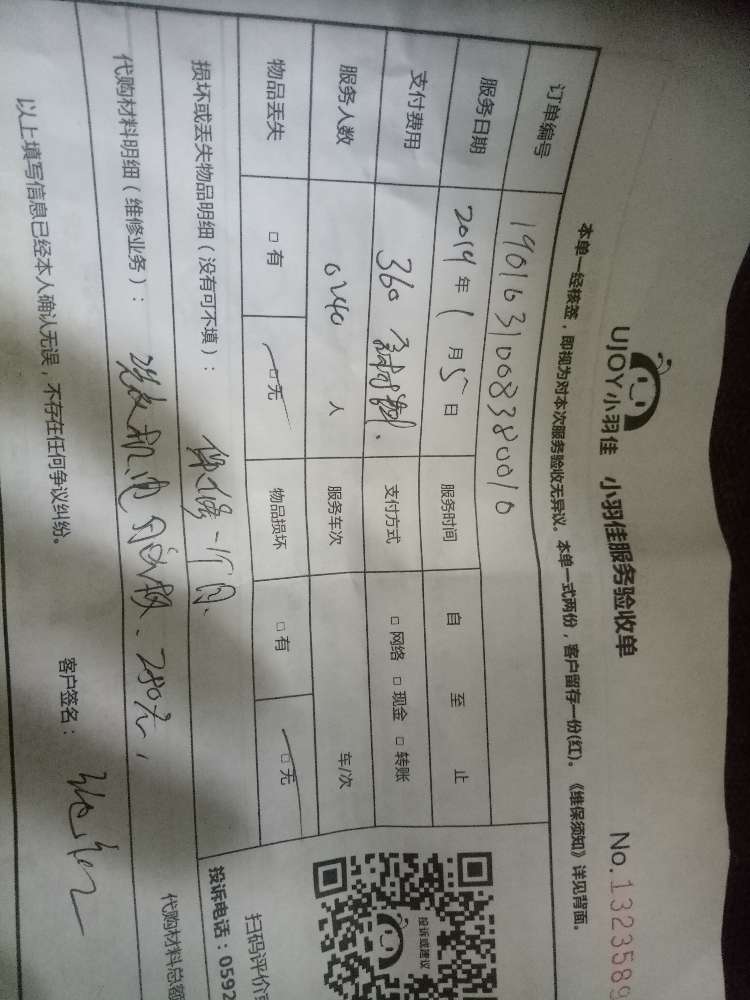 UJOY小羽佳 小羽佳服务验收单
No.1323589
本单一经核签，即视为对本次服务验收无异议。本单一式两份，客户留存一份(红)。《维保须知》详见背面。
订单编号 1901631008380010
服务日期 2019年1月5日 服务时间 自 至 止
支付费用 360 支付方式 □网络 □现金 □转账
服务人数 0240 人 服务车次 车/次
物品丢失 □有 □无 物品损坏 □有 □无
损坏或丢失物品明细（没有可不填）： 保修一个月.
代购材料明细（维修业务）： 洗衣机电 板、280元，
代购材料总额
以上填写信息已经本人确认无误，不存在任何争议纠纷。
客户签名：
投诉或建议
扫码评价
投诉电话：0592